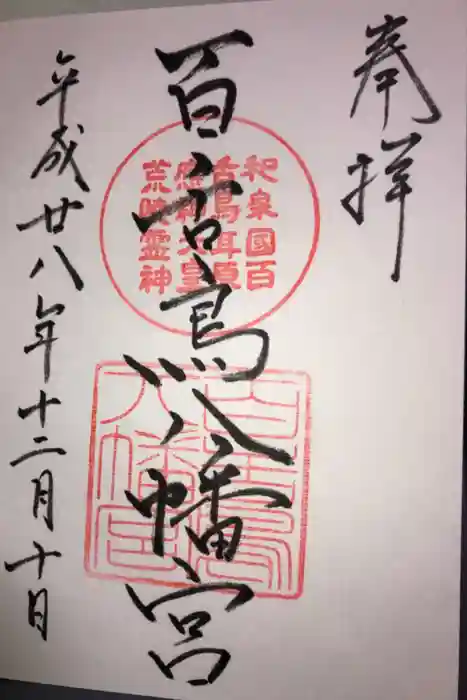 奉拝
百舌鳥八幡宮
和泉國百
舌鳥耳原
應神天皇
荒映霊神
百舌鳥
八幡宮
平成廿八年十二月十日